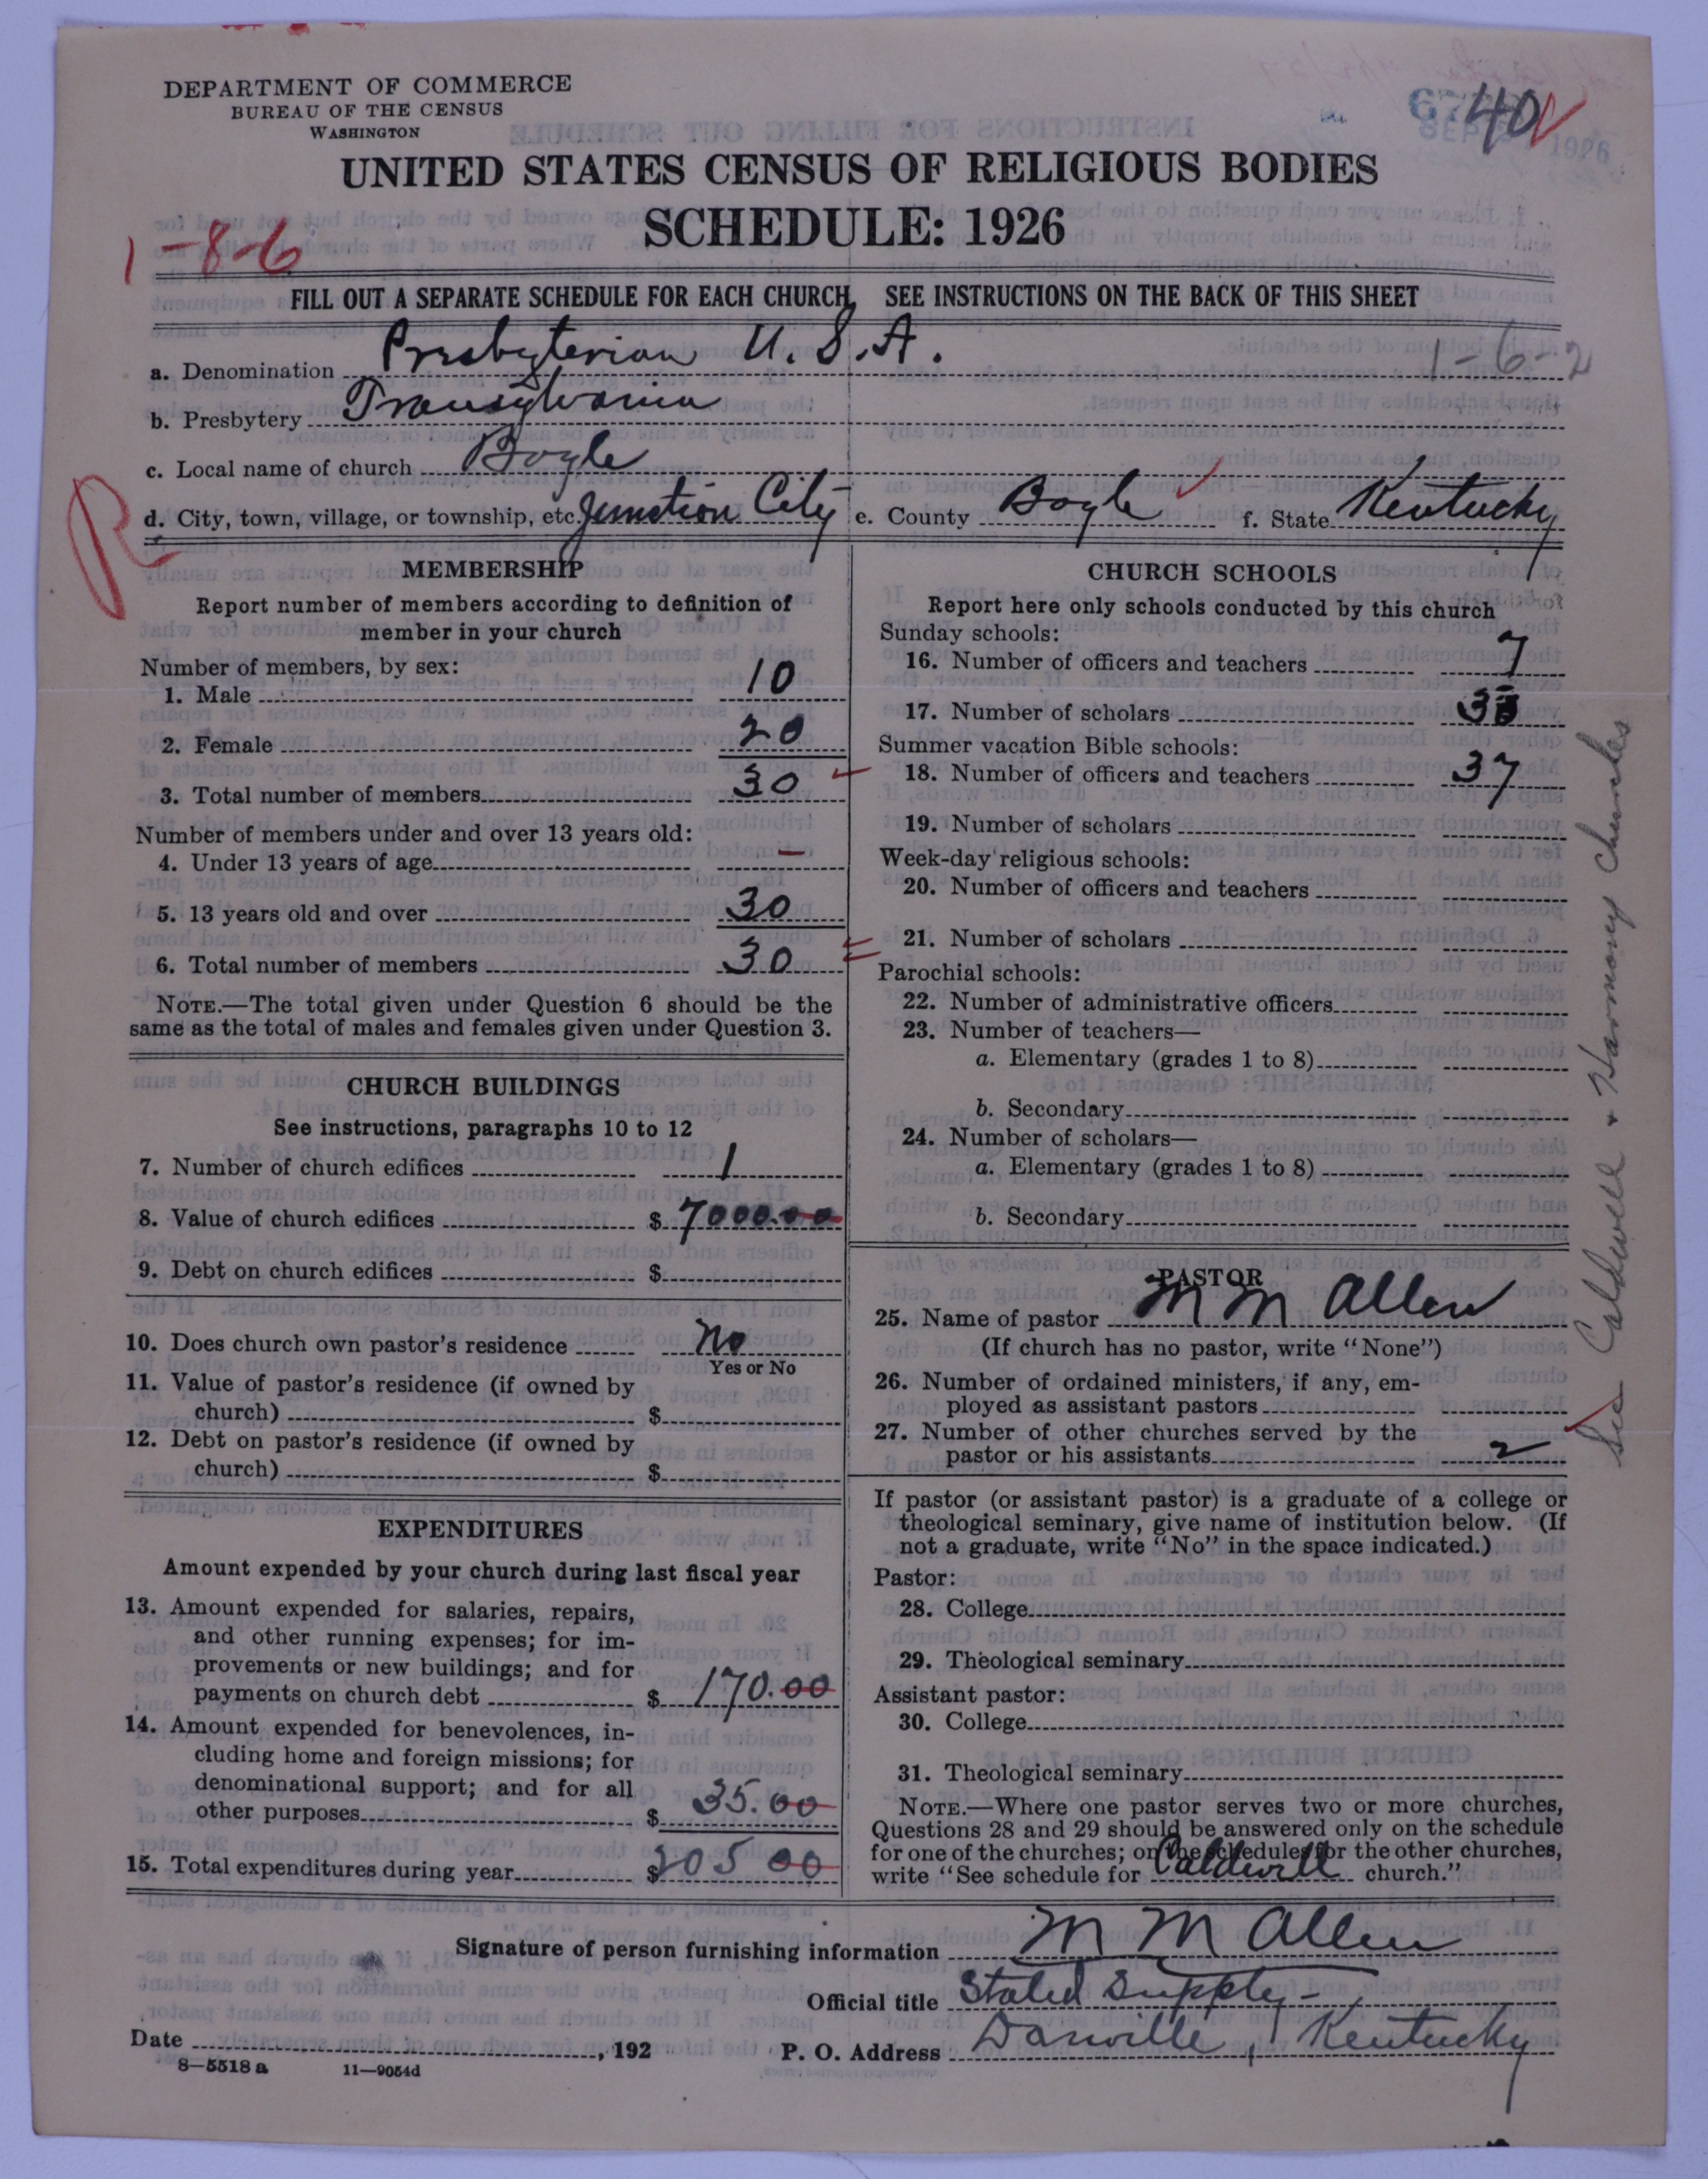 DEPARTMENT OF COMMERCE
BUREAU OF THE CENSUS
WASHINGTON
40
1926
UNITED STATES CENSUS OF RELIGIOUS BODIES
SCHEDULE: 1926
1-8-6
FILL OUT A SEPARATE SCHEDULE FOR EACH CHURCH. SEE INSTRUCTIONS ON THE BACK OF THIS SHEET
a. Denomination Presbyterian U. S. A.
1-6-2
b. Presbytery Transylvania
c. Local name of church Boyle
R
d. City, town, village, or township, etc. Junction City e. County Boyle f. State Kentucky
MEMBERSHIP
Report number of members according to definition of
member in your church
Number of members, by sex:
1. Male 10
2. Female 20
3. Total number of members 30
Number of members under and over 13 years old:
4. Under 13 years of age —
5. 13 years old and over 30
6. Total number of members 30
NOTE.—The total given under Question 6 should be the
same as the total of males and females given under Question 3.
CHURCH BUILDINGS
See instructions, paragraphs 10 to 12
7. Number of church edifices 1
8. Value of church edifices $ 7000.00
9. Debt on church edifices $
10. Does church own pastor's residence No
Yes or No
11. Value of pastor's residence (if owned by
church) $
12. Debt on pastor's residence (if owned by
church) $
EXPENDITURES
Amount expended by your church during last fiscal year
13. Amount expended for salaries, repairs,
and other running expenses; for im-
provements or new buildings; and for
payments on church debt $ 170.00
14. Amount expended for benevolences, in-
cluding home and foreign missions; for
denominational support; and for all
other purposes $ 35.00
15. Total expenditures during year $ 205 00
CHURCH SCHOOLS
Report here only schools conducted by this church
Sunday schools:
16. Number of officers and teachers 7
17. Number of scholars
Summer vacation Bible schools:
18. Number of officers and teachers 37
19. Number of scholars
Week-day religious schools:
20. Number of officers and teachers
21. Number of scholars
Parochial schools:
22. Number of administrative officers
23. Number of teachers—
a. Elementary (grades 1 to 8)
b. Secondary
24. Number of scholars—
a. Elementary (grades 1 to 8)
b. Secondary
PASTOR
25. Name of pastor M M Allen
(If church has no pastor, write "None")
26. Number of ordained ministers, if any, em-
ployed as assistant pastors
27. Number of other churches served by the
pastor or his assistants 2
If pastor (or assistant pastor) is a graduate of a college or
theological seminary, give name of institution below. (If
not a graduate, write "No" in the space indicated.)
Pastor:
28. College
29. Theological seminary
Assistant pastor:
30. College
31. Theological seminary
NOTE.—Where one pastor serves two or more churches,
Questions 28 and 29 should be answered only on the schedule
for one of the churches; on the schedules for the other churches,
write "See schedule for Caldwell church."
See Caldwell & Harmony Churches
Signature of person furnishing information M M Allen
Official title Stated Supply
Date , 192 P. O. Address Danville, Kentucky
8—5518 a 11—9054d